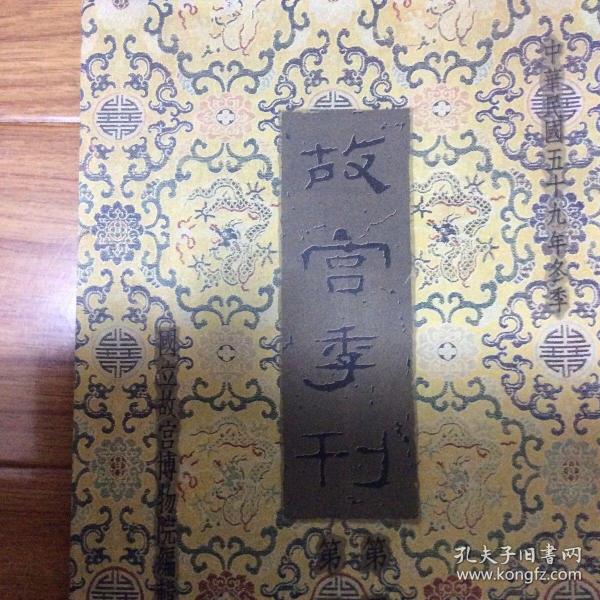 中華民國五十九年冬季
故宮季刊
第
第
國立故宮博物院編
孔夫子旧書网
www.kongfz.com